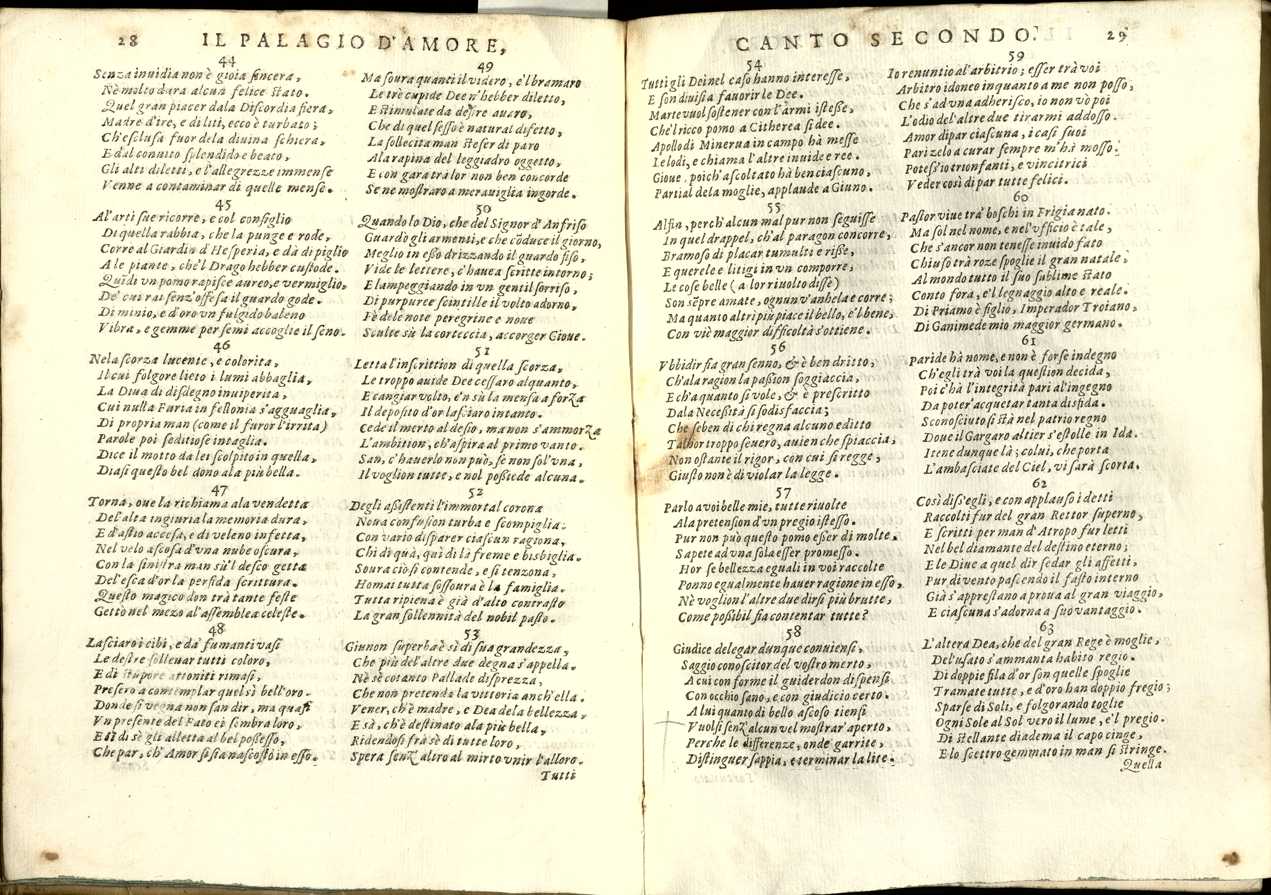 28 IL PALAGIO D'AMORE,
44
Senza inuidia non è gioia sincera,
Nè molto dura alcun felice stato.
Quel gran piacer dala Discordia fiera,
Madre d'ire, e di liti, ecco è turbato;
Ch'esclusa fuor dela diuina schiera,
E dal conuito splendido e beato,
Gli alti diletti, e l'allegrezze immense
Venne a contaminar di quelle mense.
45
Al'arti sue ricorre, e col consiglio
Di quella rabbia, che la punge e rode,
Corre al Giardin d'Hesperia, e dà di piglio
A le piante, che'l Drago hebber custode.
Quindi vn pomo rapisce aureo, e vermiglio,
De' cui rai senz'offesa il guardo gode.
Di minio, e d'oro vn fulgido baleno
Vibra, e gemme per semi accoglie il seno.
46
Nela scorza lucente, e colorita,
Il cui folgore lieto i lumi abbaglia,
La Diua di disdegno inuiperita,
Cui nulla Furia in fellonia s'agguaglia,
Di propria man (come il furor l'irrita)
Parole poi seditiose intaglia.
Dice il motto da lei scolpito in quella,
Diasi questo bel dono ala più bella.
47
Torna, oue la richiama ala vendetta
Del'alta ingiuria la memoria dura,
E d'astio accesa, e di veleno infetta,
Nel velo ascosa d'vna nube oscura,
Con la sinistra man sù'l desco getta
Del'esca d'or la perfida scrittura.
Questo magico don trà tante feste
Gettò nel mezo al'assemblea celeste.
48
Lasciaro i cibi, e da' fumanti vasi
Le destre solleuar tutti coloro,
E di stupore attoniti rimasi,
Presero a contemplar quel sì bell'oro.
Donde si vegna non san dir, ma quasi
Vn presente del Fato ei sembra loro,
E sì di sè gli alletta al bel possesso,
Che par, ch'Amor si sia nascosto in esso.
49
Ma soura quanti il videro, e'l bramaro
Le trè cupide Dee n'hebber diletto,
E stimulate da desire auaro,
Che di quel sesso è natural difetto,
La sollecita man steser di paro
Ala rapina del leggiadro oggetto,
E con gara trà lor non ben concorde
Se ne mostraro a merauiglia ingorde.
50
Quando lo Dio, che del Signor d'Anfriso
Guardò gli armenti, e che cōduce il giorno,
Meglio in esso drizzando il guardo fiso,
Vide le lettere, c'hauea scritte intorno;
E lampeggiando in vn gentil sorriso,
Di purpuree scintille il volto adorno,
Fè dele note peregrine e noue
Sculte sù la corteccia, accorger Gioue.
51
Letta l'inscrittion di quella scorza,
Le troppo auide Dee cessaro alquanto,
E cangiar volto, e'n sù la mensa a forza
Il deposito d'or lasciaro intanto.
Cede il merto al desio, ma non s'ammorza
L'ambition, ch'aspira al primo vanto.
San, c'hauerlo non può, se non sol'vna,
Il voglion tutte, e nol possiede alcuna.
52
Degli assistenti l'immortal corona
Noua confusion turba e scompiglia.
Con vario disparer ciascun ragiona,
Chi di quà, qui di là freme e bisbiglia.
Soura ciò si contende, e si tenzona,
Homai tutta sossoura è la famiglia.
Tutta ripiena è già d'alto contrasto
La gran sollennità del nobil pasto.
53
Giunon superba è sì di sua grandezza,
Che più del'altre due degna s'appella.
Nè sè cotanto Pallade disprezza,
Che non pretenda la vittoria anch'ella.
Vener, ch'è madre, e Dea dela bellezza,
E sà, ch'è destinato ala più bella,
Ridendosi frà sè di tutte loro,
Spera senz'altro al mirto vnir l'alloro.
Tutti
CANTO SECONDO. 29
54
Tutti gli Dei nel caso hanno interesse,
E son diuisi a fauorir le Dee.
Marte vuol sostener con l'armi istesse,
Che'l ricco pomo a Citherea si dee.
Apollo di Minerua in campo hà messe
Le lodi, e chiama l'altre inuide e ree.
Gioue, poich'ascoltato hà ben ciascuno,
Partial dela moglie, applaude a Giuno.
55
Alfin, perch'alcun mal pur non seguisse
In quel drappel, ch'al paragon concorre,
Bramoso di placar tumulti e risse,
E querele e litigi in vn comporre,
Le cose belle (a lor riuolto disse)
Son sēpre amate, ognun v'anhela e corre;
Ma quanto altri più piace il bello, e'l bene,
Con viè maggior difficoltà s'ottiene.
56
Vbbidir fia gran senno, & è ben dritto,
Ch'ala ragion la passion soggiaccia,
E ch'a quanto si vole, & è prescritto
Dala Necessità si sodisfaccia;
Che seben di chi regna alcuno editto
Talhor troppo seuero, auien che spiaccia,
Non ostante il rigor, con cui si regge,
Giusto non è di violar la legge.
57
Parlo a voi belle mie, tutte riuolte
Ala pretension d'vn pregio istesso.
Pur non può questo pomo esser di molte.
Sapete ad vna sola esser promesso.
Hor se bellezza eguali in voi raccolte
Ponno egualmente hauer ragione in esso,
Nè voglion l'altre due dirsi più brutte,
Come possibil fia contentar tutte?
58
Giudice delegar dunque conuiensi,
Saggio conoscitor del vostro merto,
A cui conforme il guiderdon dispensi
Con occhio sano, e con giudicio certo.
A lui quanto di bello ascoso tiensi
Vuolsi senz'alcun vel mostrar aperto,
Perche le differenze, onde garrite,
Distinguer sappia, e terminar la lite.
59
Io renuntio al'arbitrio; esser trà voi
Arbitro idoneo inquanto a me non posso,
Che s'ad vna adherisco, io non vò poi
L'odio del'altre due tirarmi addosso.
Amor di par ciascuna, i casi suoi
Pari zelo a curar sempre m'hà mosso.
Potess'io trionfanti, e vincitrici
Veder così di par tutte felici.
60
Pastor viue trà boschi in Frigia nato,
Ma sol nel nome, e nel'vfficio è tale,
Che s'ancor non tenesse inuido fato
Chiuso trà roze spoglie il gran natale,
Al mondo tutto il suo sublime stato
Conto fora, e'l legnaggio alto e reale.
Di Priamo è figlio, Imperador Troiano,
Di Ganimede mio maggior germano.
61
Paride hà nome, e non è forse indegno
Ch'egli trà voi la question decida,
Poi c'hà l'integrità pari al'ingegno
Da poter'acquetar tanta disfida.
Sconosciuto si stà nel patrio regno
Doue il Gargaro altier s'estolle in Ida.
Itene dunque là; colui, che porta
L'ambasciate del Ciel, vi sarà scorta.
62
Così diss'egli, e con applauso i detti
Raccolti fur del gran Rettor superno,
E scritti per man d'Atropo fur letti
Nel bel diamante del destino eterno;
E le Diue a quel dir sedar gli affetti,
Pur di vento pascendo il fasto interno
Già s'apprestano a proua al gran viaggio,
E ciascuna s'adorna a suo vantaggio.
63
L'altera Dea, che del gran Rege è moglie,
Del'vsato s'ammanta habito regio.
Di doppie fila d'or son quelle spoglie
Tramate tutte, e d'oro han doppio fregio;
Sparse di Soli, e folgorando toglie
Ogni Sole al Sol vero il lume, e'l pregio.
Di stellante diadema il capo cinge,
E lo scettro gemmato in man si stringe.
Quella